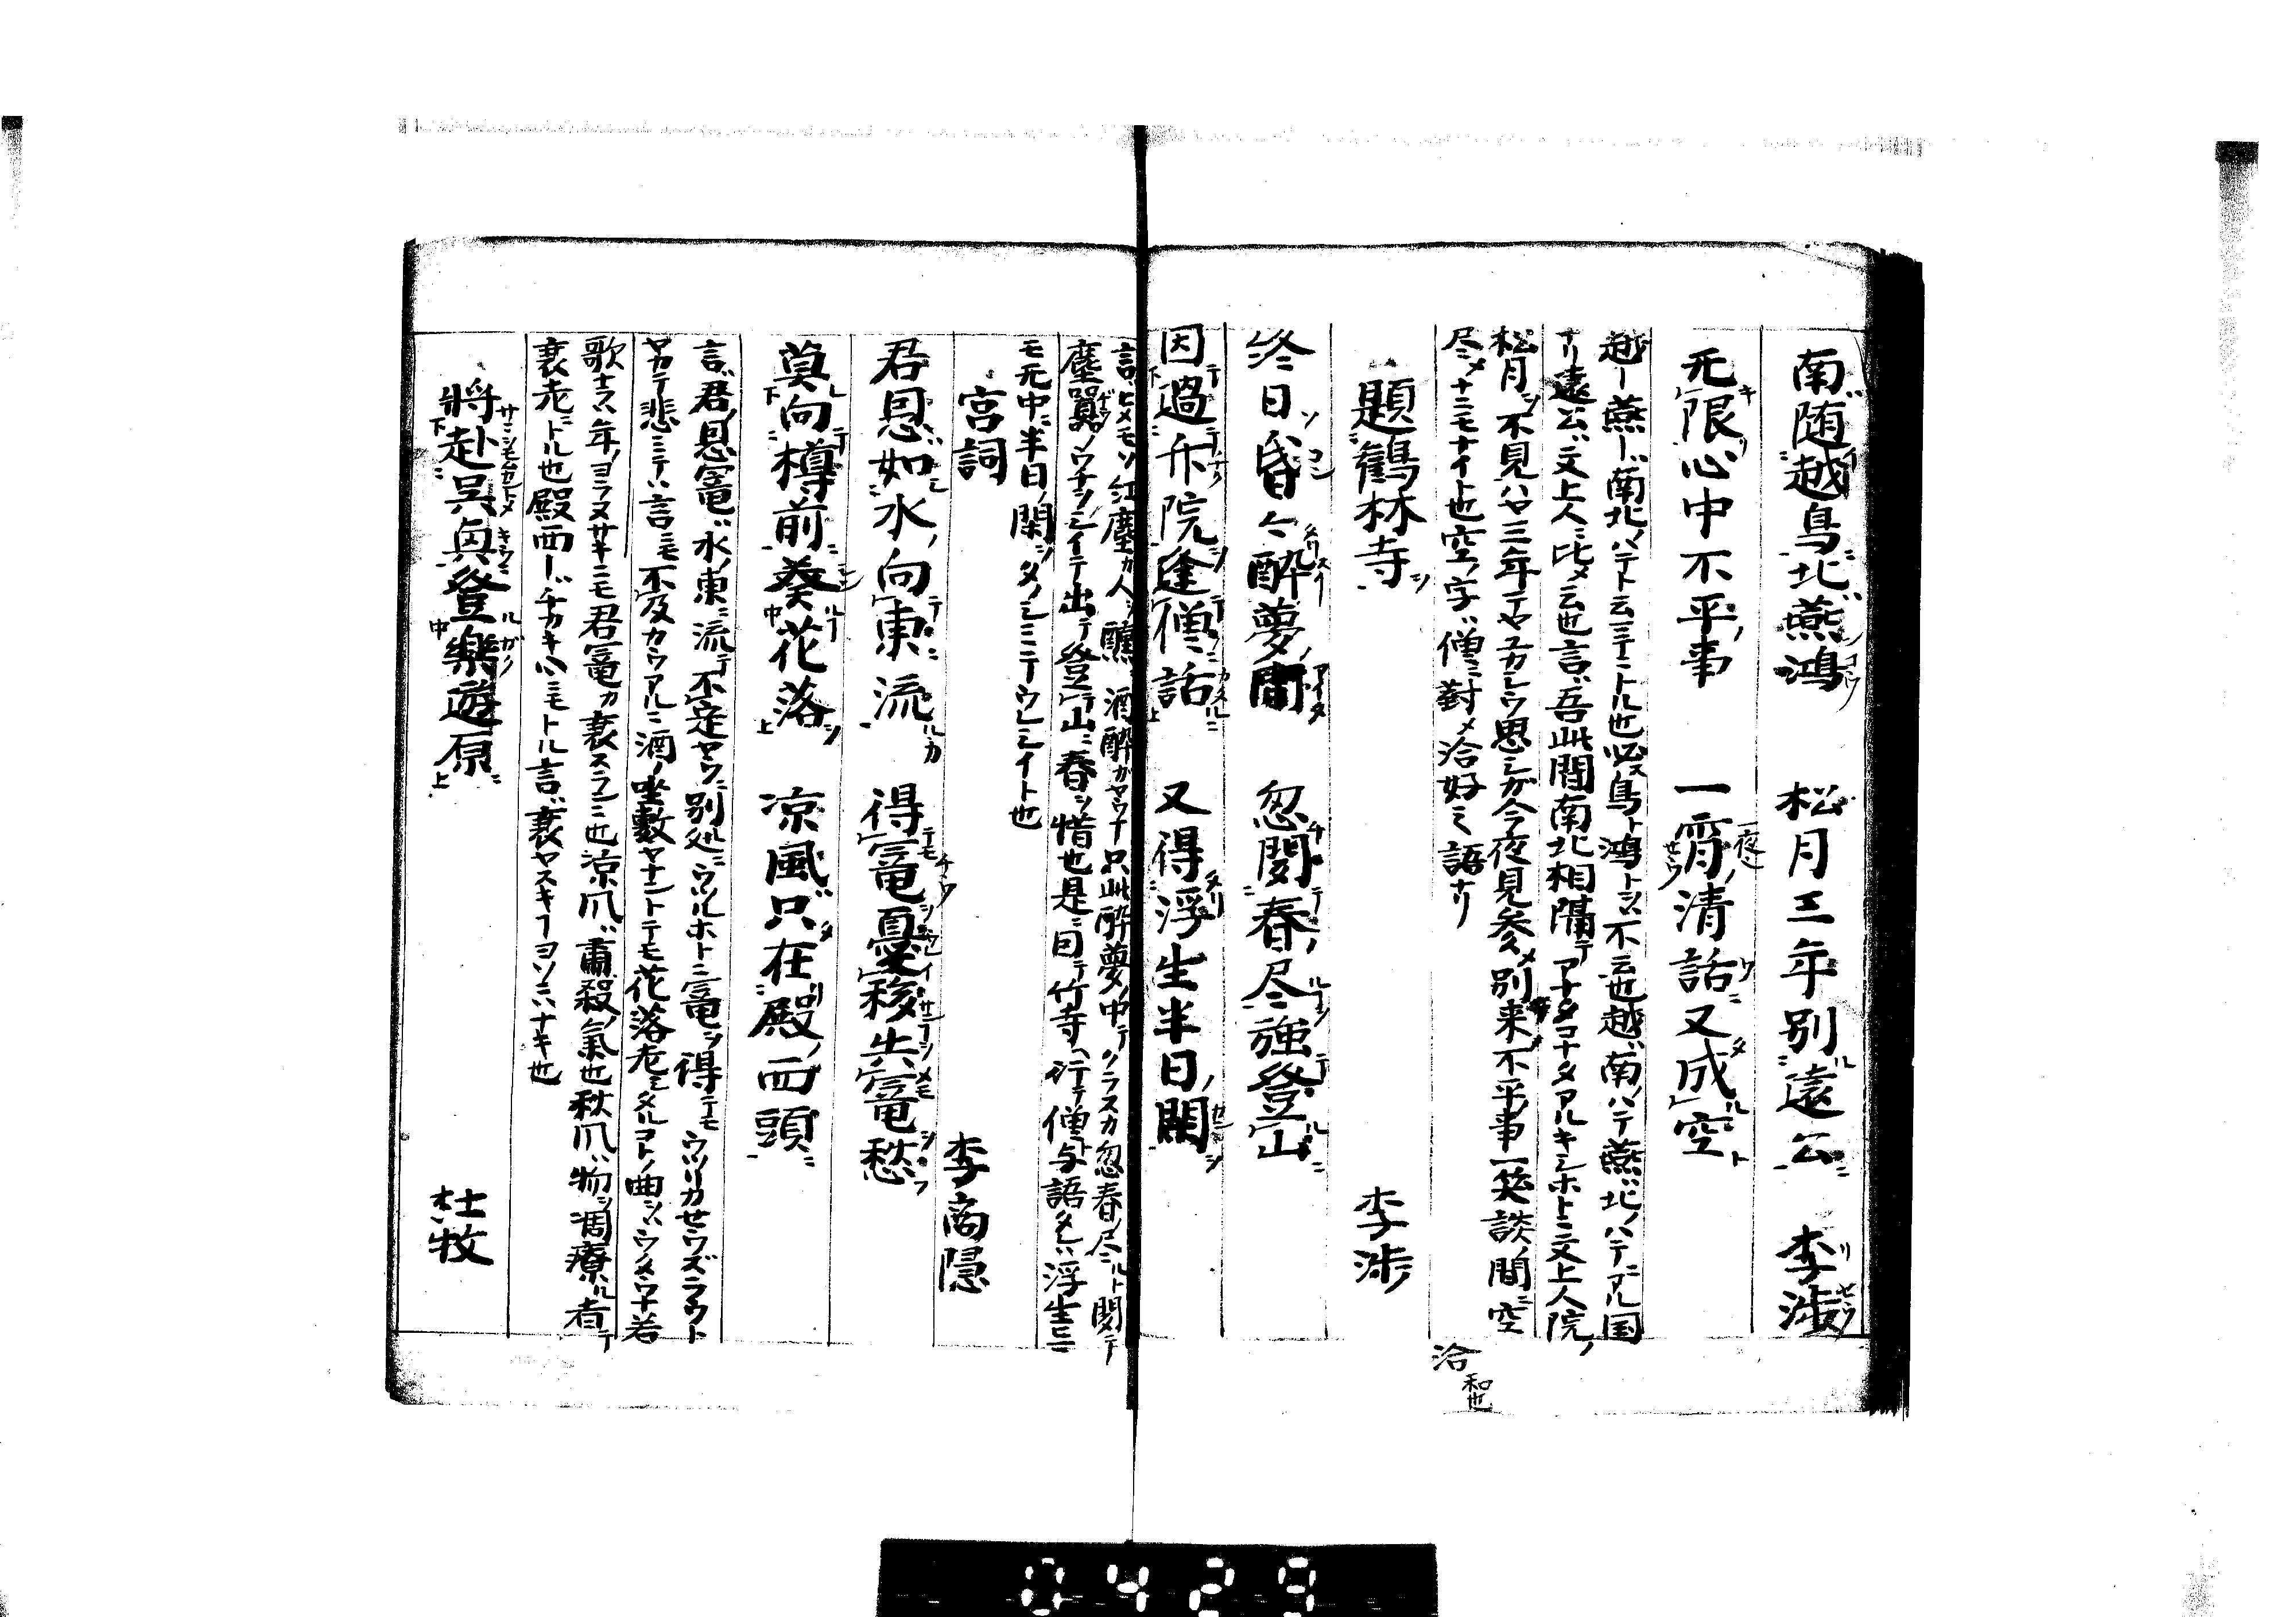 南随越鳥北燕鴻　松月三年別遠公　李渉
无限心中不平事　一宵清話又成空
越ー燕ー南北ノハテト云テニトル也必鳥ト鴻トシハ不云也越ハ南ノハテ燕ハ北ノハテニアル国
アリ遠公ハ文上人ニ比メ云也言ハ吾此間南北相隔テアナタコナタアルキシホトニ文上人院ノ
松月ヲ不見ハヤ三年テヤ思シガ今夜見参メ別来不平ノ事一笑談ノ間ニ空
尽メナニモナイト也空ノ字ハ僧ニ對メ洽好之語ナリ
洽 和也
題鶴林寺　李渉
終日昏々酔夢間　忽聞春尽強登山
因過竹院逢僧話　又得浮生半日閑
言ハヒメモソ紅塵カ人ヲ醺メ酒酔カヤウナ只此酔夢ノ中テクラスカ忽春ノ尽ルト聞テ
塵囂ノウチヲシイテ出テ登テ山ニ春ヲ惜也是ニ因テ竹寺ヘ行テ僧与語タレハ浮生ニ
モ无中ニ半日ノ閑ヲタノシミテウレシイト也
宮詞　李商隠
君恩如水向東流　得寵憂移失寵愁
莫向樽前奏花落　凉風只在殿西頭
言ハ君ノ恩寵ハ水ノ東ニ流テ不定ヤウニ別処ニウツルホトニ寵ヲ得テモウツリカセウズラウト
ヤカテ悲ミテハ言ニモ不及カウアルニ酒ノ坐敷ヤナントテモ花落老ミタルコトノ曲シハウメウナ若
歌ナラハ年ノヨラヌサキニモ君寵カ衰スラン也凉爪ハ粛殺ノ氣也秋爪ハ物ヲ凋療ル者テ
衰老ニトル也殿西ーハチカキ心ニモトル言ハ衰ヤスキヿヨソニハナキ也
將赴呉興登樂遊原　杜牧